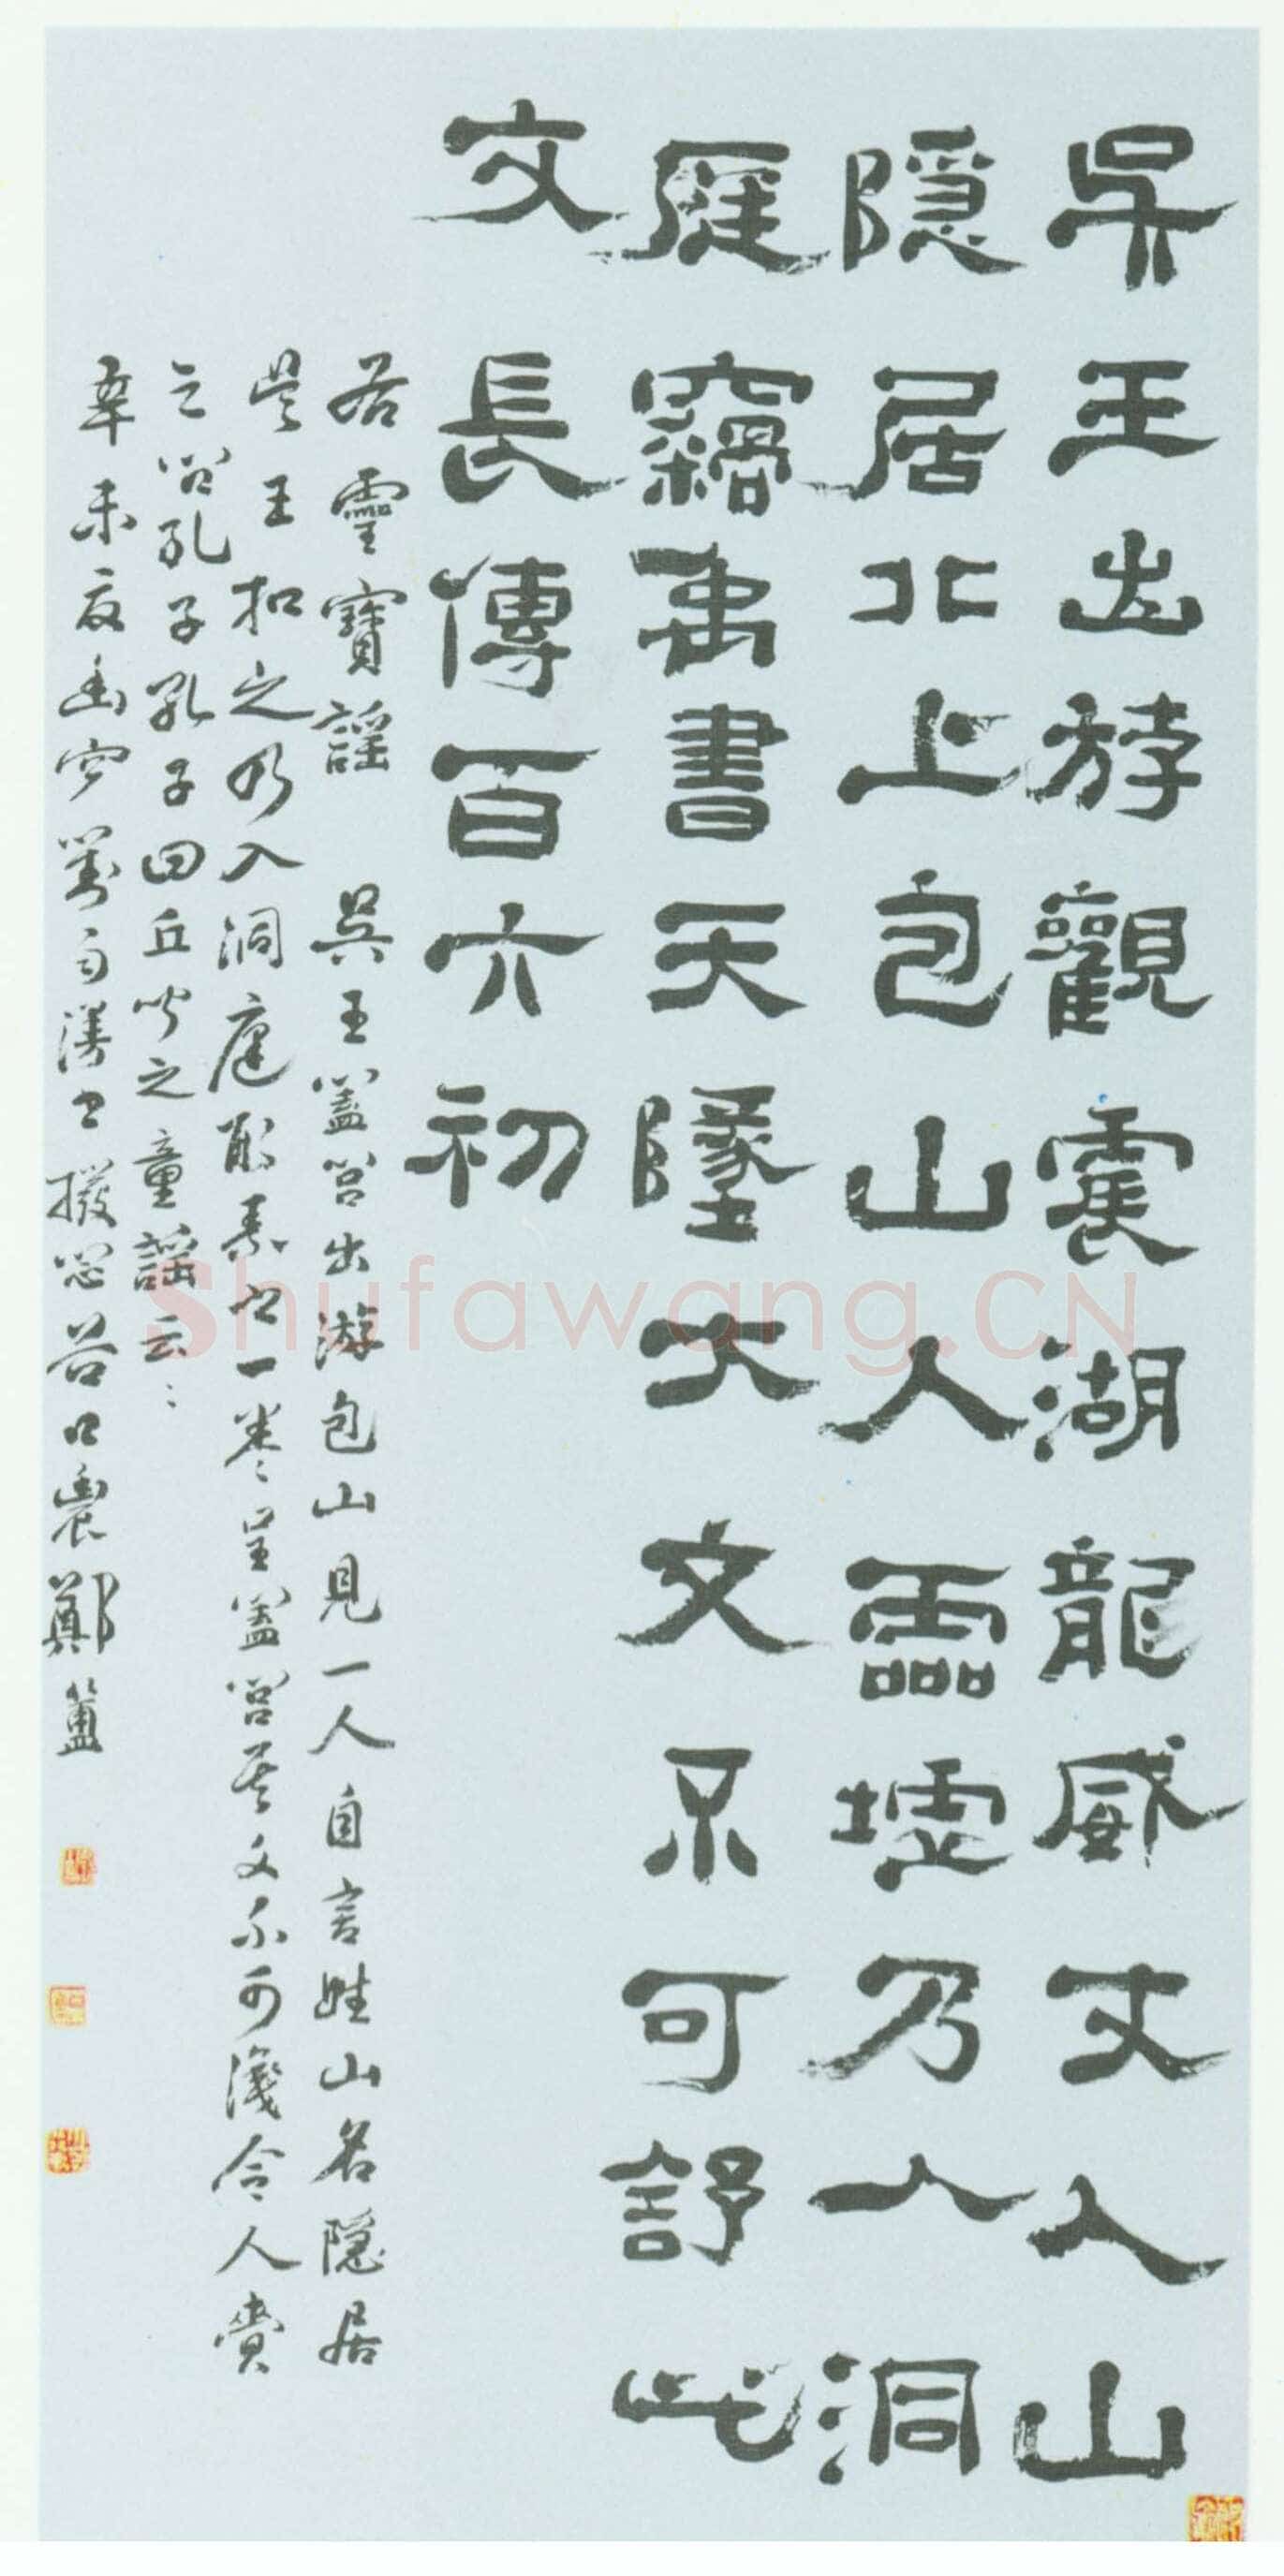 吳王出游觀震湖龍威丈人山
隱居北上包山入靈墟乃入洞
庭竊禹書天墜大文不可舒此
文長傳百六初
右靈寶謠 吳王闔閭出游包山見一人自言姓山名隱居
吳王扣之乃入洞庭取素書一卷呈闔閭其文不可識令人賷
之問孔子孔子曰丘聞之童謠云云
辛未夏 對雨漫書 谷口農鄭簠
Shufawang.CN